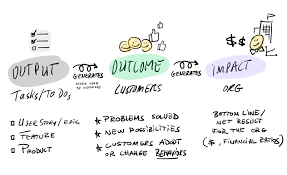 $ $
OUTPUT
GENERATES
OUTCOME
GENERATES
IMPACT
TASKS/TO DOS
CUSTOMERS
ORG
USER STORY/EPIC
FEATURE
PRODUCT
* PROBLEMS SOLVED
* NEW POSSIBILITIES
* CUSTOMERS ADOPT
OR CHANGE BEHAVIORS
BOTTOM LINE/
NET RESULT
FOR THE ORG
($, FINANCIAL RATIOS)